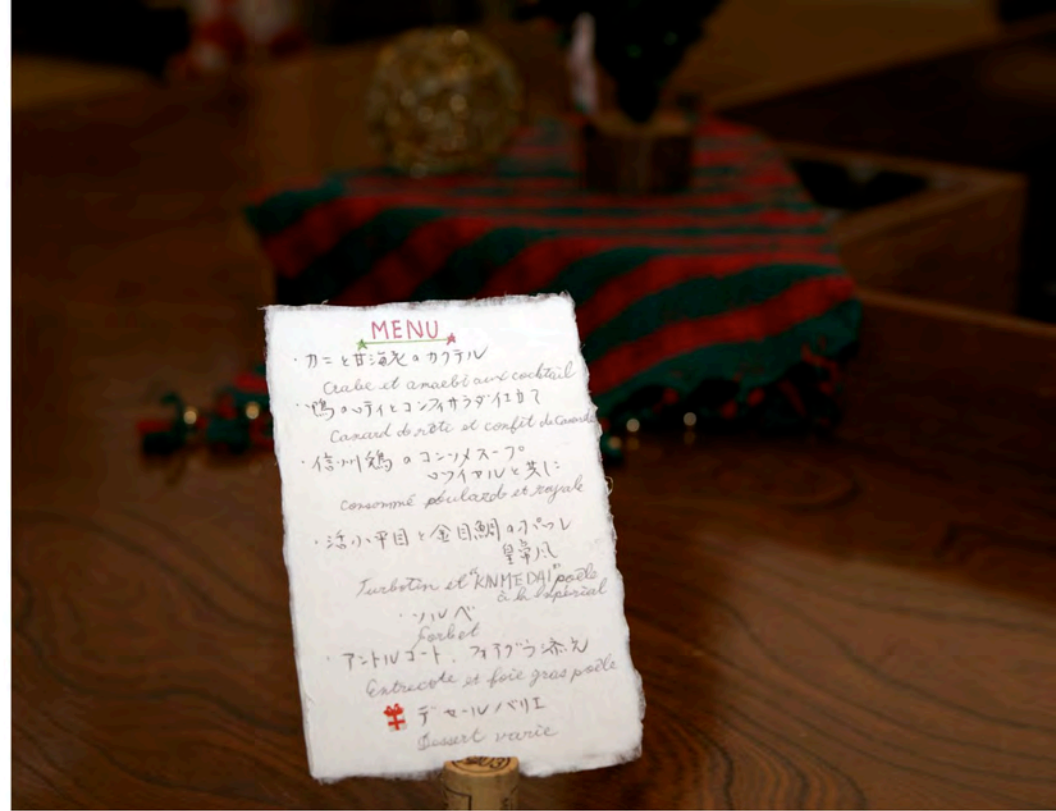 MENU
・カニと甘海老のカクテル
Crabe et amaebi aux cocktail
・鴨のロティとコンフィサラダ仕立て
Canard de rôti et confit de Canard
・信州鶏のコンソメスープ
ロワイアルと共に
Consommé poularde et royale
・活小平目と金目鯛のポワレ
皇帝風
Turbotin et "KINMEDAI" poêle
à la Impérial
・ソルベ
Sorbet
・アントルコート、フォアグラ添え
Entrecote et foie gras poêle
デセールバリエ
Dessert varie